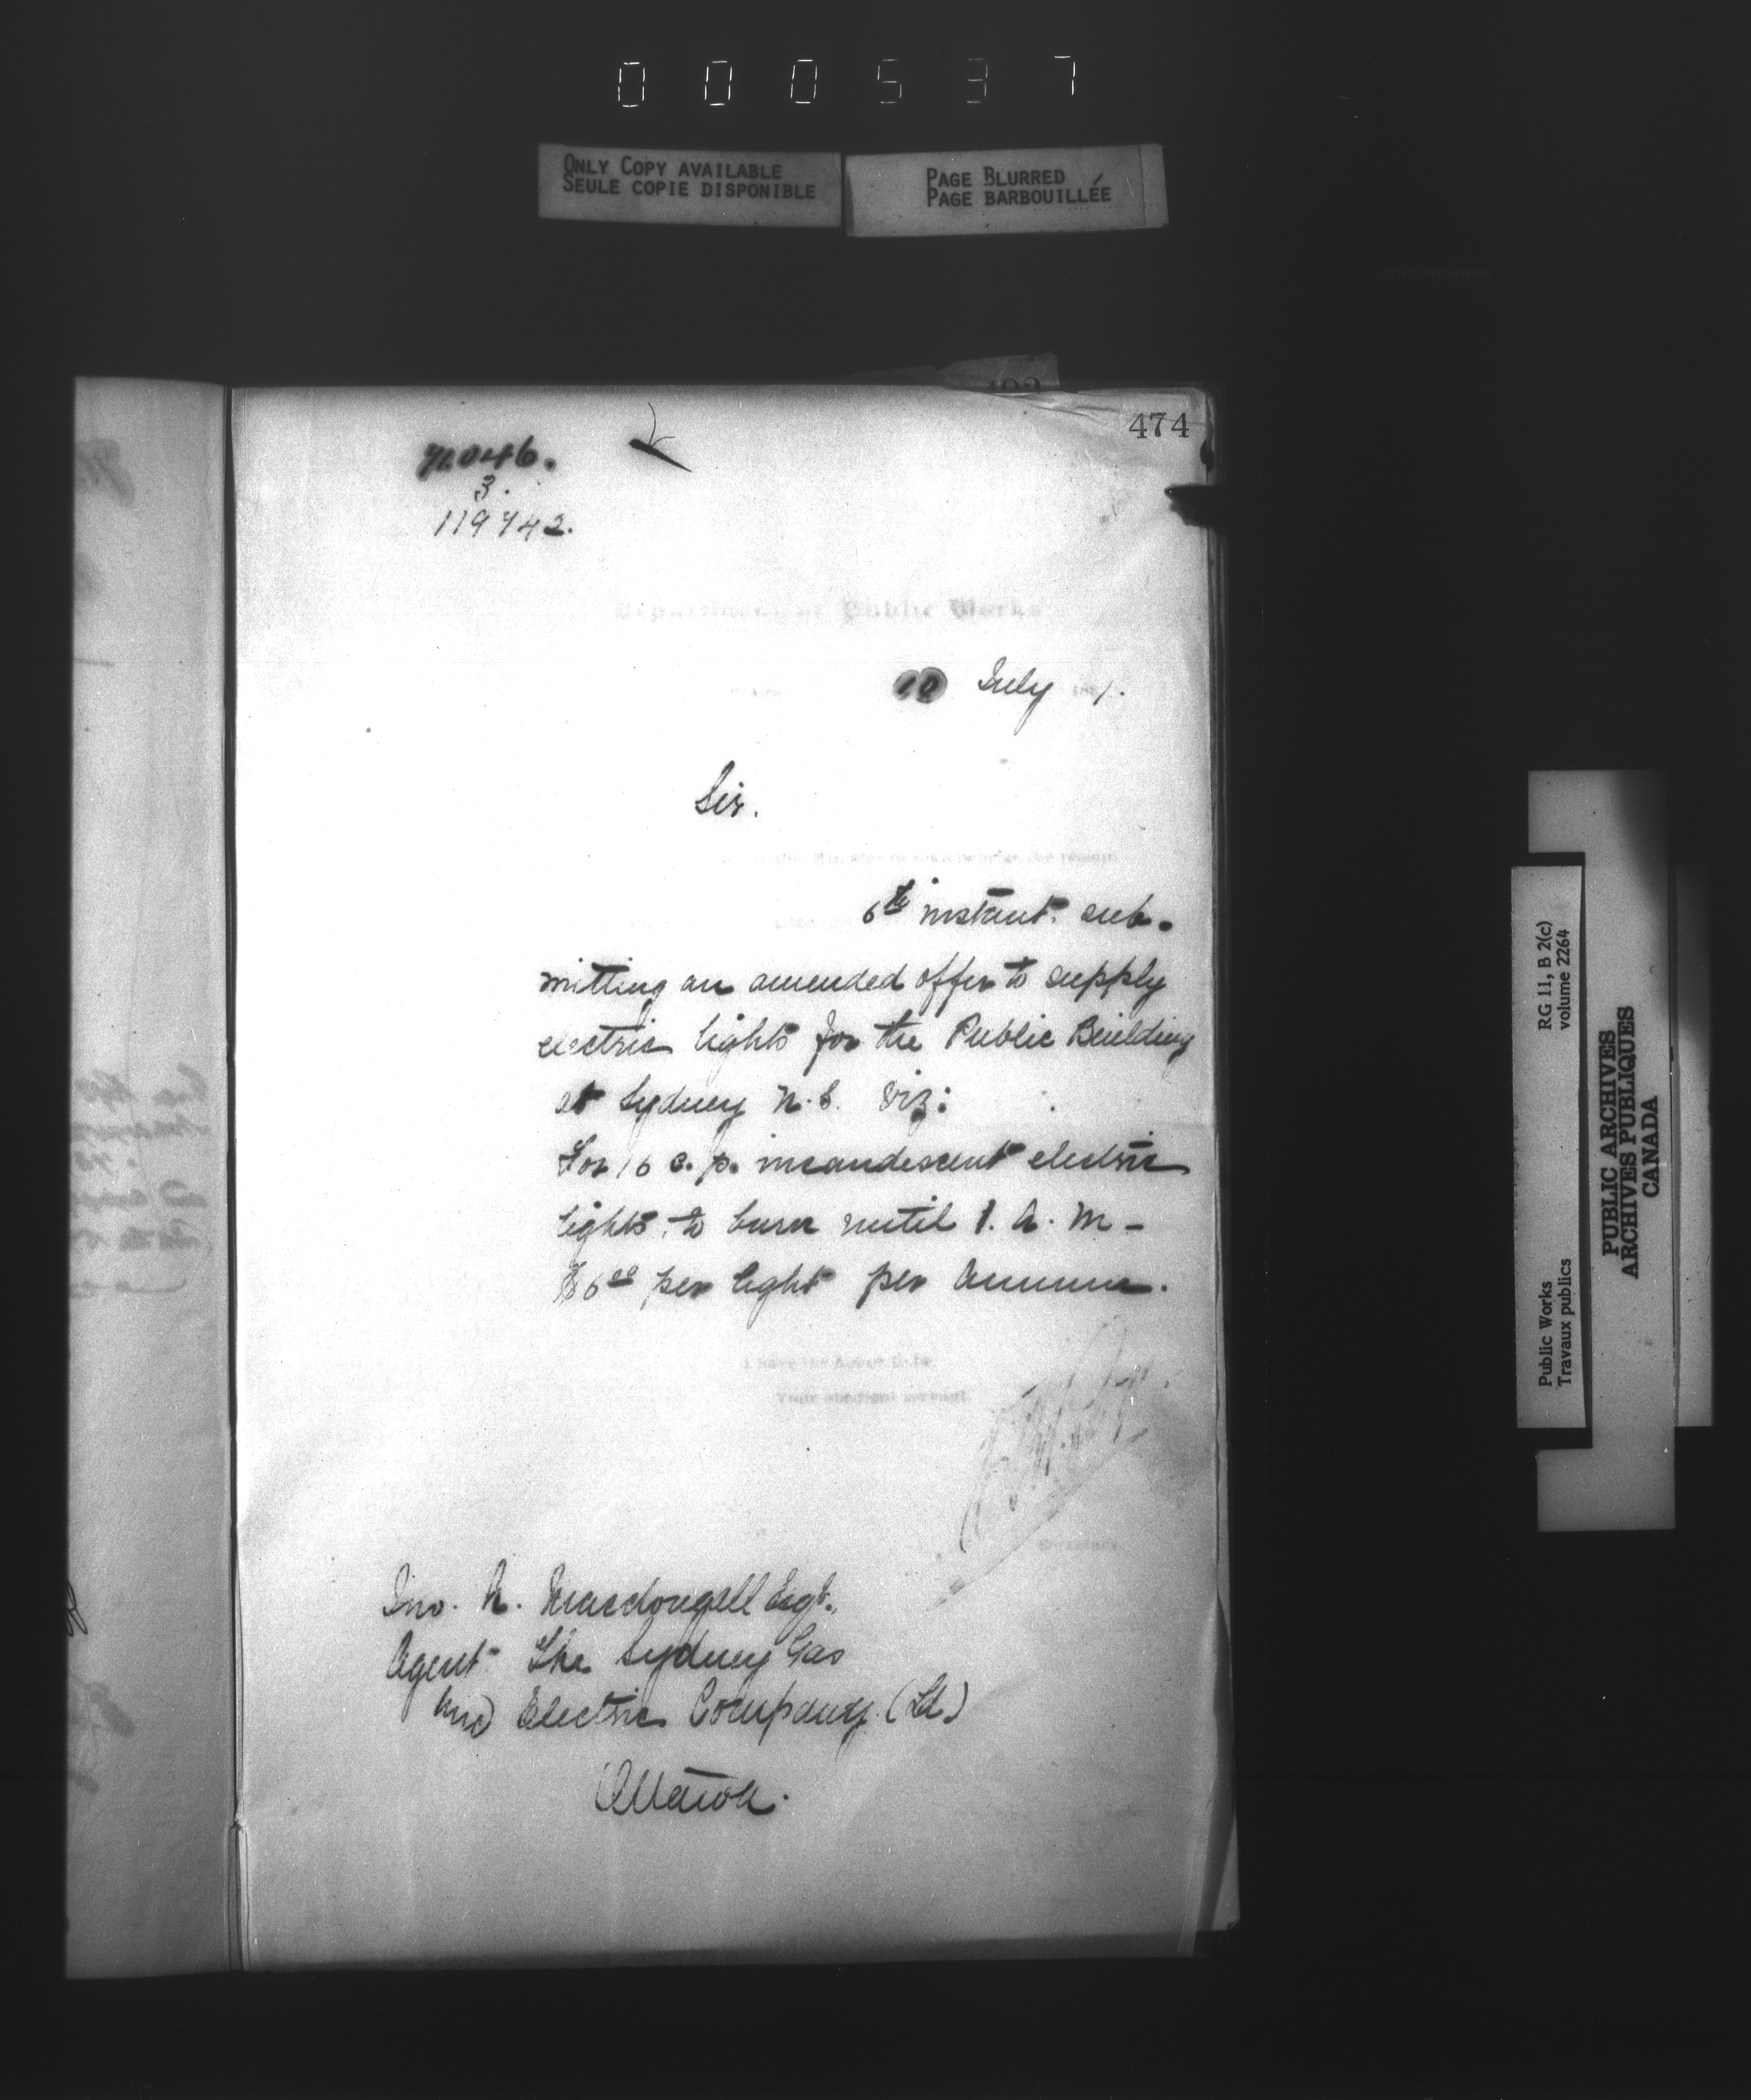 000537
ONLY COPY AVAILABLE
SEULE COPIE DISPONIBLE
PAGE BLURRED
PAGE BARBOUILLÉE
474
3.
119742.
Department of Public Works
10 July 1.
Sir.
6th instant. sub-
mitting an amended offer to supply
electric lights for the Public Building
at Sydney N.S. Viz:
For 16 c. p. incandescent electric
lights, to burn until 1. A. M -
$6.00 per light per Annum.
I have the honor to be
Your obedient servant
Secretary
Jno. A. Macdougall Esqr.,
Agent The Sydney Gas
And Electric Company (Ld.)
Ottawa.
RG 11, B 2(c)
volume 2264
Public Works
Travaux publics
PUBLIC ARCHIVES
ARCHIVES PUBLIQUES
CANADA